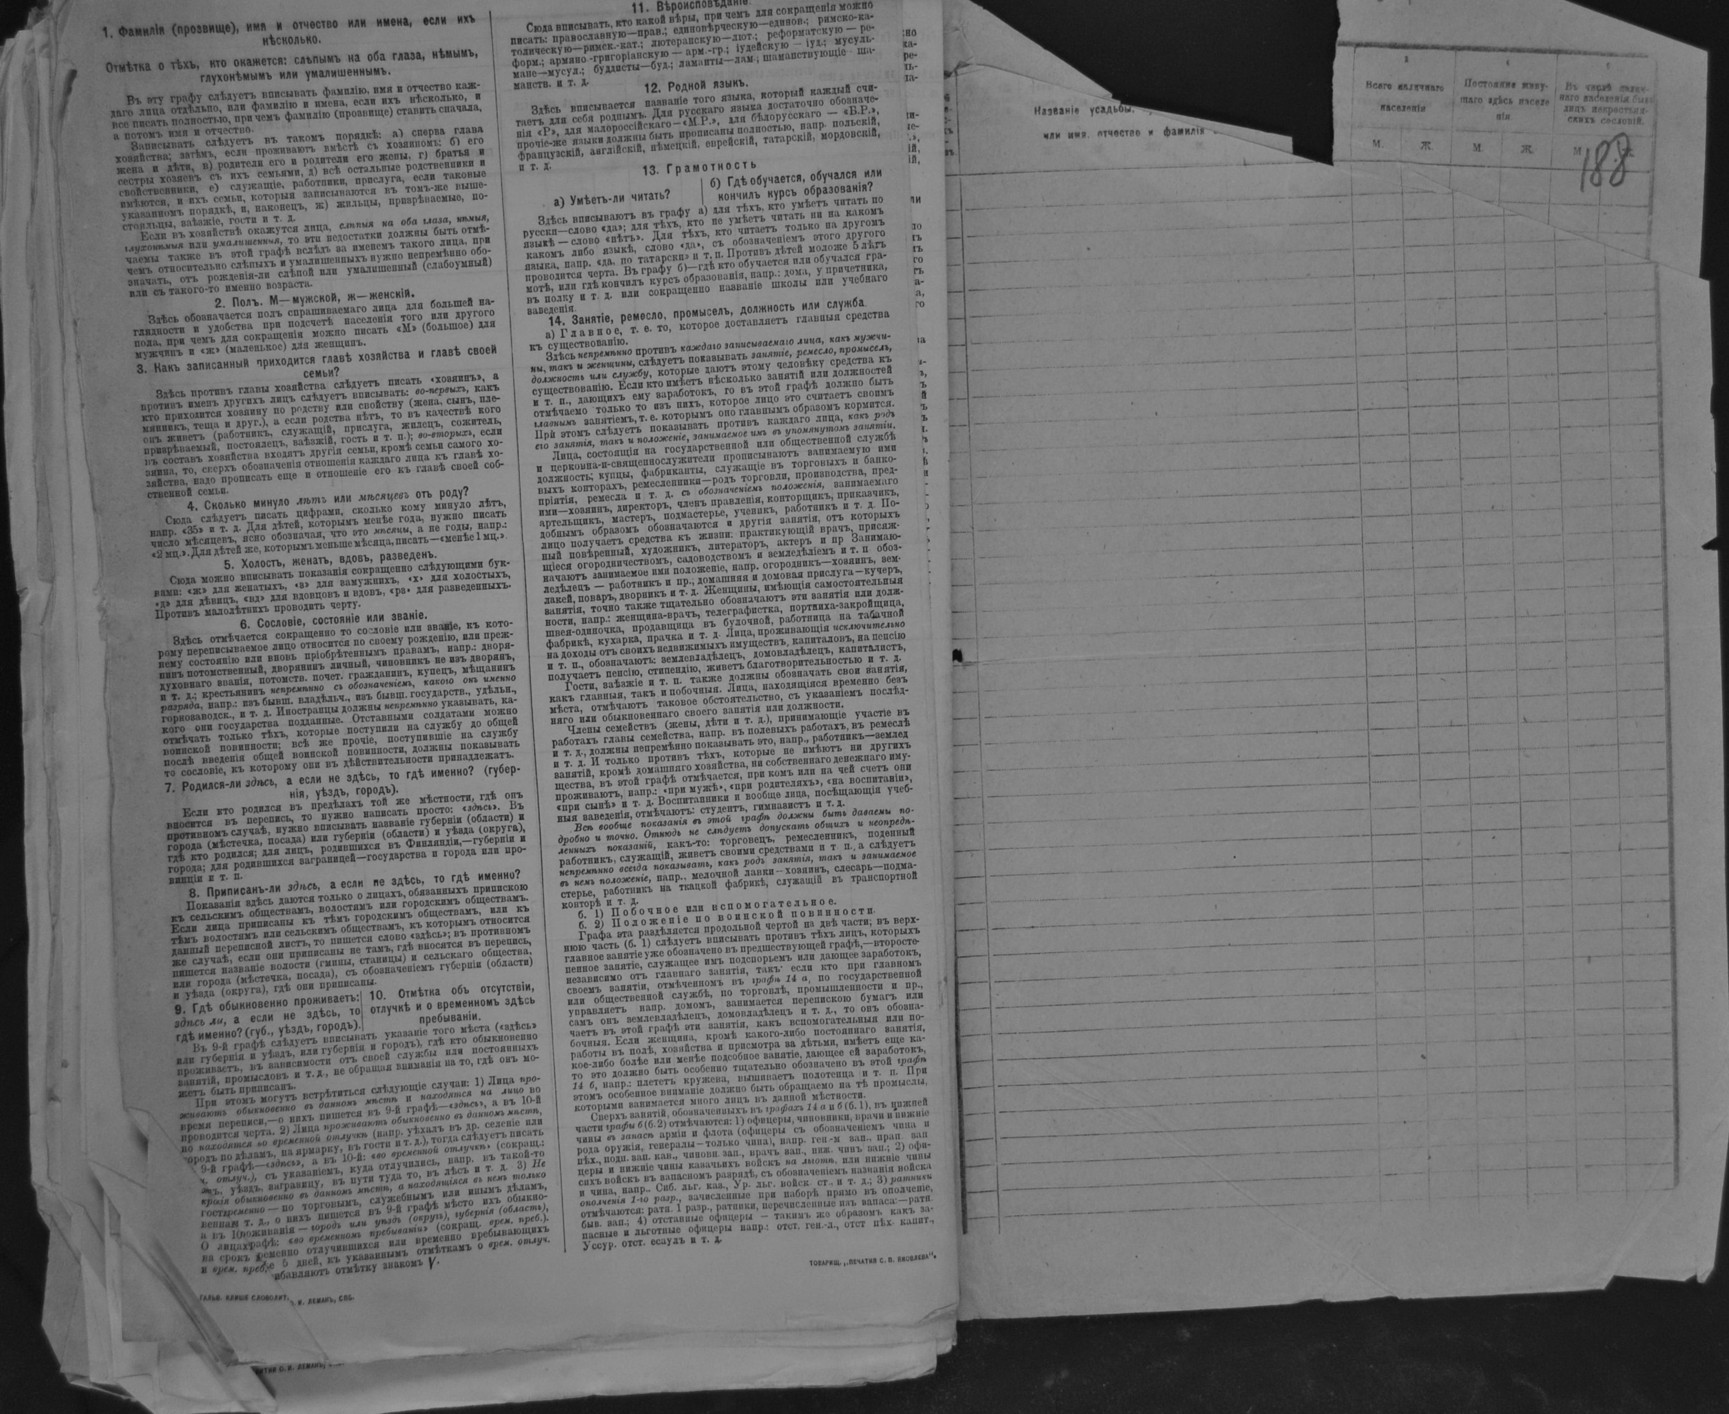 1. Фамилія (прозвище), имя и отчество или имена, если ихъ
нѣсколько.
Отмѣтка о тѣхъ, кто окажется: слѣпымъ на оба глаза, нѣмымъ,
глухонѣмымъ или умалишеннымъ.
Въ эту графу слѣдуетъ вписывать фамилію, имя и отчество каж-
даго лица отдѣльно, или фамилію и имена, если ихъ нѣсколько, и
все писать полностью, при чемъ фамилію (прозвище) ставить сначала,
а потомъ имя и отчество.
Записывать слѣдуетъ въ такомъ порядкѣ: а) сперва глава
хозяйства; затѣмъ, если проживаютъ вмѣстѣ съ хозяиномъ: б) его
жена и дѣти, в) родители его и родители его жены, г) братья и
сестры хозяевъ съ ихъ семьями, д) всѣ остальные родственники и
свойственники, е) служащіе, работники, прислуга, если таковые
имѣются, и ихъ семьи, которыя записываются въ томъ-же выше-
указанномъ порядкѣ, и, наконецъ, ж) жильцы, призрѣваемые, по-
стояльцы, заѣзжіе, гости и т. д.
Если въ хозяйствѣ окажутся лица, слѣпыя на оба глаза, нѣмыя,
глухонѣмыя или умалишенныя, то эти недостатки должны быть отмѣ-
чаемы также въ этой графѣ вслѣдъ за именемъ такого лица, при
чемъ относительно слѣпыхъ и умалишенныхъ нужно непремѣнно обо-
значать, отъ рожденія-ли слѣпой или умалишенный (слабоумный)
или съ такого-то именно возраста.
2. Полъ. М—мужской, ж—женскій.
Здѣсь обозначается полъ спрашиваемаго лица для большей на-
глядности и удобства при подсчетѣ населенія того или другого
пола, при чемъ для сокращенія можно писать «М» (большое) для
мужчинъ и «ж» (маленькое) для женщинъ.
3. Какъ записанный приходится главѣ хозяйства и главѣ своей
семьи?
Здѣсь противъ главы хозяйства слѣдуетъ писать «хозяинъ», а
противъ именъ другихъ лицъ слѣдуетъ вписывать: во-первыхъ, какъ
кто приходится хозяину по родству или свойству (жена, сынъ, пле-
мянникъ, теща и друг.), а если родства нѣтъ, то въ качествѣ кого
онъ живетъ (работникъ, служащій, прислуга, жилецъ, сожитель,
призрѣваемый, постоялецъ, заѣзжій, гость и т. п.); во-вторыхъ, если
въ составъ хозяйства входятъ другія семьи, кромѣ семьи самого хо-
зяина, то, сверхъ обозначенія отношенія каждаго лица къ главѣ хо-
зяйства, надо прописать еще и отношеніе его къ главѣ своей соб-
ственной семьи.
4. Сколько минуло лѣтъ или мѣсяцевъ отъ роду?
Сюда слѣдуетъ писать цифрами, сколько кому минуло лѣтъ,
напр. «35» и т. д. Для дѣтей, которымъ менѣе года, нужно писать
число мѣсяцевъ, ясно обозначая, что это мѣсяцы, а не годы, напр.:
«2 мц.». Для дѣтей же, которымъ меньше мѣсяца, писать—«менѣе 1 мц.».
5. Холостъ, женатъ, вдовъ, разведенъ.
Сюда можно вписывать показанія сокращенно слѣдующими бук-
вами: «ж» для женатыхъ, «з» для замужнихъ, «х» для холостыхъ,
«д» для дѣвицъ, «вд» для вдовцовъ и вдовъ, «рз» для разведенныхъ.
Противъ малолѣтнихъ проводить черту.
6. Сословіе, состояніе или званіе.
Здѣсь отмѣчается сокращенно то сословіе или званіе, къ кото-
рому переписываемое лицо относится по своему рожденію, или преж-
нему состоянію или вновь пріобрѣтеннымъ правамъ, напр.: дворя-
нинъ потомственный, дворянинъ личный, чиновникъ не изъ дворянъ,
духовнаго званія, потомств. почет. гражданинъ, купецъ, мѣщанинъ
и т. д.; крестьянинъ непремѣнно съ обозначеніемъ, какого онъ именно
разряда, напр.: изъ бывш. владѣльч., изъ бывш. государств., удѣльн.,
горнозаводск., и т. д. Иностранцы должны непремѣнно указывать, ка-
кого они государства подданные. Отставными солдатами можно
отмѣчать только тѣхъ, которые поступили на службу до общей
воинской повинности; всѣ же прочіе, поступившіе на службу
послѣ введенія общей воинской повинности, должны показывать
то сословіе, къ которому они въ дѣйствительности принадлежатъ.
7. Родился-ли здѣсь, а если не здѣсь, то гдѣ именно? (губер-
нія, уѣздъ, городъ).
Если кто родился въ предѣлахъ той же мѣстности, гдѣ онъ
вносится въ перепись, то нужно написать просто: «здѣсь». Въ
противномъ случаѣ, нужно вписывать названіе губерніи (области) и
города (мѣстечка, посада) или губерніи (области) и уѣзда (округа),
гдѣ кто родился; для лицъ, родившихся въ Финляндіи,—губерніи и
города; для родившихся заграницей—государства и города или про-
винціи и т. п.
8. Приписанъ-ли здѣсь, а если не здѣсь, то гдѣ именно?
Показанія здѣсь даются только о лицахъ, обязанныхъ припискою
къ сельскимъ обществамъ, волостямъ или городскимъ обществамъ.
Если лица приписаны къ тѣмъ городскимъ обществамъ, или къ
тѣмъ волостямъ или сельскимъ обществамъ, къ которымъ относится
данный переписной листъ, то пишется слово «здѣсь»; въ противномъ
же случаѣ, если они приписаны не тамъ, гдѣ вносятся въ перепись,
пишется названіе волости (гмины, станицы) и сельскаго общества,
или города (мѣстечка, посада), съ обозначеніемъ губерніи (области)
и уѣзда (округа), гдѣ они приписаны.
9. Гдѣ обыкновенно проживаетъ:
здѣсь ли, а если не здѣсь, то
гдѣ именно? (губ., уѣздъ, городъ).
10. Отмѣтка объ отсутствіи,
отлучкѣ и о временномъ здѣсь
пребываніи.
Въ 9-й графѣ слѣдуетъ вписывать указаніе того мѣста («здѣсь»
или губернія и уѣздъ, или губернія и городъ), гдѣ кто обыкновенно
проживаетъ, въ зависимости отъ своей службы или постоянныхъ
занятій, промысловъ и т. д., не обращая вниманія на то, гдѣ онъ мо-
жетъ быть приписанъ.
При этомъ могутъ встрѣтиться слѣдующіе случаи: 1) Лица про-
живаютъ обыкновенно въ данномъ мѣстѣ и находятся на лицо во
время переписи,—о нихъ пишется въ 9-й графѣ—«здѣсь», а въ 10-й
проводится черта. 2) Лица проживаютъ обыкновенно въ данномъ мѣстѣ,
но находятся во временной отлучкѣ (напр. уѣхалъ въ др. селеніе или
городъ по дѣламъ, на ярмарку, въ гости и т. д.), тогда слѣдуетъ писать
9-й графѣ—«здѣсь», а въ 10-й: «во временной отлучкѣ» (сокращ.:
отлуч.), съ указаніемъ, куда отлучились, напр. въ такой-то
уѣздъ, заграницу, въ пути туда то, въ лѣсъ и т. д. 3) Не
обыкновенно въ данномъ мѣстѣ, а находящіяся въ немъ только
по торговымъ, служебнымъ или инымъ дѣламъ,
т. д., о нихъ пишется въ 9-й графѣ мѣсто ихъ обыкно-
— городъ или уѣздъ (округъ), губернія (область),
«во временномъ пребываніи» (сокращ. врем. преб.).
О лицахъ
отлучившихся или временно пребывающихъ
5 дней, къ указаннымъ отмѣткамъ о врем. отлуч.
и врем. преб.
отмѣтку знакомъ V.
11. Вѣроисповѣданіе.
Сюда вписывать, кто какой вѣры, при чемъ для сокращенія можно
писать: православную—прав.; единовѣрческую—единов.; римско-ка-
толическую—римск.-кат.; лютеранскую—лют.; реформатскую — ре-
форм.; армяно-григоріанскую — арм.-гр.; іудейскую — іуд.; мусуль-
мане—мусул.; буддисты—буд.; ламаиты—лам.; шаманствующіе — ша-
манств. и т. д.
12. Родной языкъ.
Здѣсь вписывается названіе того языка, который каждый счи-
таетъ для себя роднымъ. Для русскаго языка достаточно обозначе-
нія «Р», для малороссійскаго—«М.Р.», для бѣлорусскаго — «Б.Р.»,
прочіе-же языки должны быть прописаны полностью, напр. польскій,
французскій, англійскій, нѣмецкій, еврейскій, татарскій, мордовскій,
и т. д.
13. Грамотность
а) Умѣетъ-ли читать?
б) Гдѣ обучается, обучался или
кончилъ курсъ образованія?
Здѣсь вписываютъ въ графу а) для тѣхъ, кто умѣетъ читать по
русски—слово «да»; для тѣхъ, кто не умѣетъ читать ни на какомъ
языкѣ — слово «нѣтъ». Для тѣхъ, кто читаетъ только на другомъ
какомъ либо языкѣ, слово «да», съ обозначеніемъ этого другого
языка, напр. «да, по татарски» и т. п. Противъ дѣтей моложе 5 лѣтъ
проводится черта. Въ графу б)—гдѣ кто обучается или обучался гра-
мотѣ, или гдѣ кончилъ курсъ образованія, напр.: дома, у причетника,
въ полку и т. д. или сокращенно названіе школы или учебнаго
заведенія.
14. Занятіе, ремесло, промыселъ, должность или служба
а) Главное, т. е. то, которое доставляетъ главныя средства
къ существованію.
Здѣсь непремѣнно противъ каждаго записываемаго лица, какъ мужчи-
ны, такъ и женщины, слѣдуетъ показывать занятіе, ремесло, промыселъ,
должность или службу, которые даютъ этому человѣку средства къ
существованію. Если кто имѣетъ нѣсколько занятій или должностей
и т. п., дающихъ ему заработокъ, то въ этой графѣ должно быть
отмѣчаемо только то изъ нихъ, которое лицо это считаетъ своимъ
главнымъ занятіемъ, т. е. которымъ оно главнымъ образомъ кормится.
При этомъ слѣдуетъ показывать противъ каждаго лица, какъ родъ
его занятія, такъ и положеніе, занимаемое имъ въ упомянутомъ занятіи.
Лица, состоящія на государственной или общественной службѣ
и церковно-и-священнослужители прописываютъ занимаемую ими
должность; купцы, фабриканты, служащіе въ торговыхъ и банко-
выхъ конторахъ, ремесленники—родъ торговли, производства, пред-
пріятія, ремесла и т. д. съ обозначеніемъ положенія, занимаемаго
ими—хозяинъ, директоръ, членъ правленія, конторщикъ, приказчикъ,
артельщикъ, мастеръ, подмастерье, ученикъ, работникъ и т. д. По-
добнымъ образомъ обозначаются и другія занятія, отъ которыхъ
лицо получаетъ средства къ жизни: практикующій врачъ, присяж-
ный повѣренный, художникъ, литераторъ, актеръ и пр Занимаю-
щіеся огородничествомъ, садоводствомъ и земледѣліемъ и т. п обоз-
начаютъ занимаемое имя положеніе, напр. огородникъ—хозяинъ, зем-
ледѣлецъ — работникъ и пр.; домашняя и домовая прислуга—кучеръ,
лакей, поваръ, дворникъ и т. д. Женщины, имѣющія самостоятельныя
занятія, точно также тщательно обозначаютъ эти занятія или долж-
ности, напр.: женщина-врачъ, телеграфистка, портниха-закройщица,
швея-одиночка, продавщица въ булочной, работница на табачной
фабрикѣ, кухарка, прачка и т. д. Лица, проживающія исключительно
на доходы отъ своихъ недвижимыхъ имуществъ, капиталовъ, на пенсію
и т. п., обозначаютъ: землевладѣлецъ, домовладѣлецъ, капиталистъ,
получаетъ пенсію, стипендію, живетъ благотворительностью и т. д.
Гости, заѣзжіе и т. п. также должны обозначать свои занятія,
какъ главныя, такъ и побочныя. Лица, находящіяся временно безъ
мѣста, отмѣчаютъ таковое обстоятельство, съ указаніемъ послѣд-
няго или обыкновеннаго своего занятія или должности.
Члены семействъ (жены, дѣти и т. д.), принимающіе участіе въ
работахъ главы семейства, напр. въ полевыхъ работахъ, въ ремеслѣ
и т. д., должны непремѣнно показывать это, напр., работникъ—землед
и т. д. И только противъ тѣхъ, которые не имѣютъ ни другихъ
занятій, кромѣ домашняго хозяйства, ни собственнаго денежнаго иму-
щества, въ этой графѣ отмѣчается, при комъ или на чей счетъ они
проживаютъ, напр.: «при мужѣ», «при родителяхъ», «на воспитаніи»,
«при сынѣ» и т. д. Воспитанники и вообще лица, посѣщающія учеб-
ныя заведенія, отмѣчаютъ: студентъ, гимназистъ и т. д.
Всѣ вообще показанія въ этой графѣ должны быть даваемы по-
дробно и точно. Отнюдь не слѣдуетъ допускать общихъ и неопредѣ-
ленныхъ показаній, какъ-то: торговецъ, ремесленникъ, поденный
работникъ, служащій, живетъ своими средствами и т п., а слѣдуетъ
непремѣнно всегда показывать, какъ родъ занятія, такъ и занимаемое
въ немъ положеніе, напр., мелочной лавки—хозяинъ, слесарь—подма-
стерье, работникъ на ткацкой фабрикѣ, служащій въ транспортной
конторѣ и т. д.
б. 1) Побочное или вспомогательное.
б. 2) Положеніе по воинской повинности.
Графа эта раздѣляется продольной чертой на двѣ части; въ верх-
нюю часть (б. 1) слѣдуетъ вписывать противъ тѣхъ лицъ, которыхъ
главное занятіе уже обозначено въ предшествующей графѣ,—второсте-
пенное занятіе, служащее имъ подспорьемъ или дающее заработокъ,
независимо отъ главнаго занятія, такъ: если кто при главномъ
своемъ занятіи, отмѣченномъ въ графѣ 14 а, по государственной
или общественной службѣ, по торговлѣ, промышленности и пр.,
управляетъ напр. домомъ, занимается перепискою бумагъ или
самъ онъ землевладѣлецъ, домовладѣлецъ и т. д., то онъ обозна-
чаетъ въ этой графѣ эти занятія, какъ вспомогательныя или по-
бочныя. Если женщина, кромѣ какого-либо постояннаго занятія,
работы въ полѣ, хозяйства и присмотра за дѣтьми, имѣетъ еще ка-
кое-либо болѣе или менѣе подсобное занятіе, дающее ей заработокъ,
то это должно быть особенно тщательно обозначено въ этой графѣ
14 б, напр.: плететъ кружева, вышиваетъ полотенца и т. п. При
этомъ особенное вниманіе должно быть обращаемо на тѣ промыслы,
которыми занимается много лицъ въ данной мѣстности.
Сверхъ занятій, обозначенныхъ въ графахъ 14 а и б (б. 1), въ нижней
части графы б (б. 2) отмѣчаются: 1) офицеры, чиновники, врачи и нижніе
чины въ запасѣ арміи и флота (офицеры съ обозначеніемъ чина и
рода оружія, генералы—только чина), напр. ген-м зап., прап. зап
пѣх., подп. зап. кав., чиновн зап., врачъ зап., ниж. чинъ зап.; 2) офи-
церы и нижніе чины казачьихъ войскъ на льготѣ, или нижніе чины
сихъ войскъ въ запасномъ разрядѣ, съ обозначеніемъ названія войска
и чина, напр., Сиб. льг. каз., Ур. льг. войск. ст. и т. д.; 3) ратники
ополченія 1-го разр., зачисленные при наборѣ прямо въ ополченіе,
отмѣчаются: ратн. 1 разр., ратники, перечисленные изъ запаса:—ратн.
быв. зап.; 4) отставные офицеры — такимъ же образомъ какъ за-
пасные и льготные офицеры напр.: отст. ген.-л., отст пѣх. капит.,
Уссур. отст. есаулъ и т. д.
ТОВАРИЩ. „ПЕЧАТНЯ С. П. ЯКОВЛЕВА".
ГАЛЬВ. КЛИШЕ СЛОВОЛИТ.
И. ЛЕМАНЪ, СПБ.
Названіе усадьбы,
или имя, отчество и фамилія
Всего наличнаго
населенія
Постоянно живу-
щаго здѣсь населе
нія
Въ числѣ налич-
наго населенія было
лицъ некрестьян-
скихъ сословій.
М. Ж. М. Ж. М
188